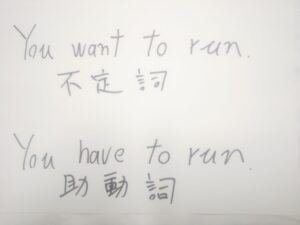 You want to run.
不定詞
You have to run.
助動詞